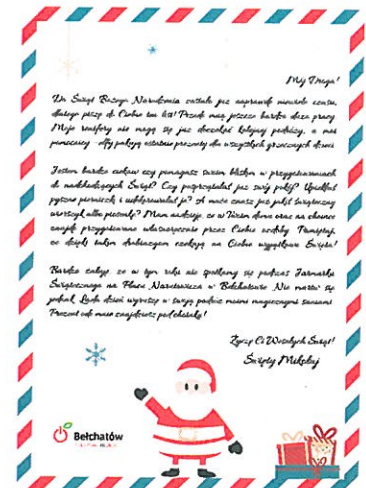 Mój Drogi!
Do Świąt Bożego Narodzenia zostało już naprawdę niewiele czasu,
dlatego piszę do Ciebie ten list! Przede mną jeszcze bardzo dużo pracy.
Moje renifery nie mogą się już doczekać kolejnej podróży, a moi
pomocnicy - elfy pakują ostatnie prezenty dla wszystkich grzecznych dzieci.
Jestem bardzo ciekaw czy pomagasz swoim bliskim w przygotowaniach
do nadchodzących Świąt? Czy posprzątałeś już swój pokój? Upiekłeś
pyszne pierniczki i udekorowałeś je? A może znasz już jakiś świąteczny
wierszyk albo piosenkę? Mam nadzieję, że w Twoim domu oraz na choince
znajdę przygotowane własnoręcznie przez Ciebie ozdoby. Pamiętaj,
że dzięki takim drobiazgom czekają na Ciebie wyjątkowe Święta!
Bardzo żałuję, że w tym roku nie spotkamy się podczas Jarmarku
Świątecznego na Placu Narutowicza w Bełchatowie. Nie martw się
jednak, Lada dzień wyruszę w swoją podróż moimi magicznymi saniami.
Prezent ode mnie znajdziesz pod choinką!
Życzę Ci Wesołych Świąt!
Święty Mikołaj
Bełchatów